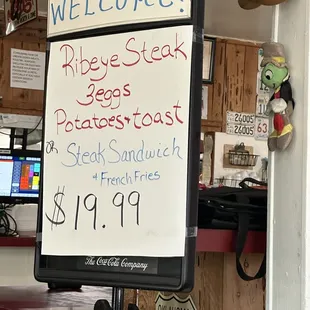 WELCOME!
Ribeye Steak
3 eggs
Potatoes + toast
or Steak Sandwich
+ French Fries
$19.99
The Coca-Cola Company
24005
24005
63